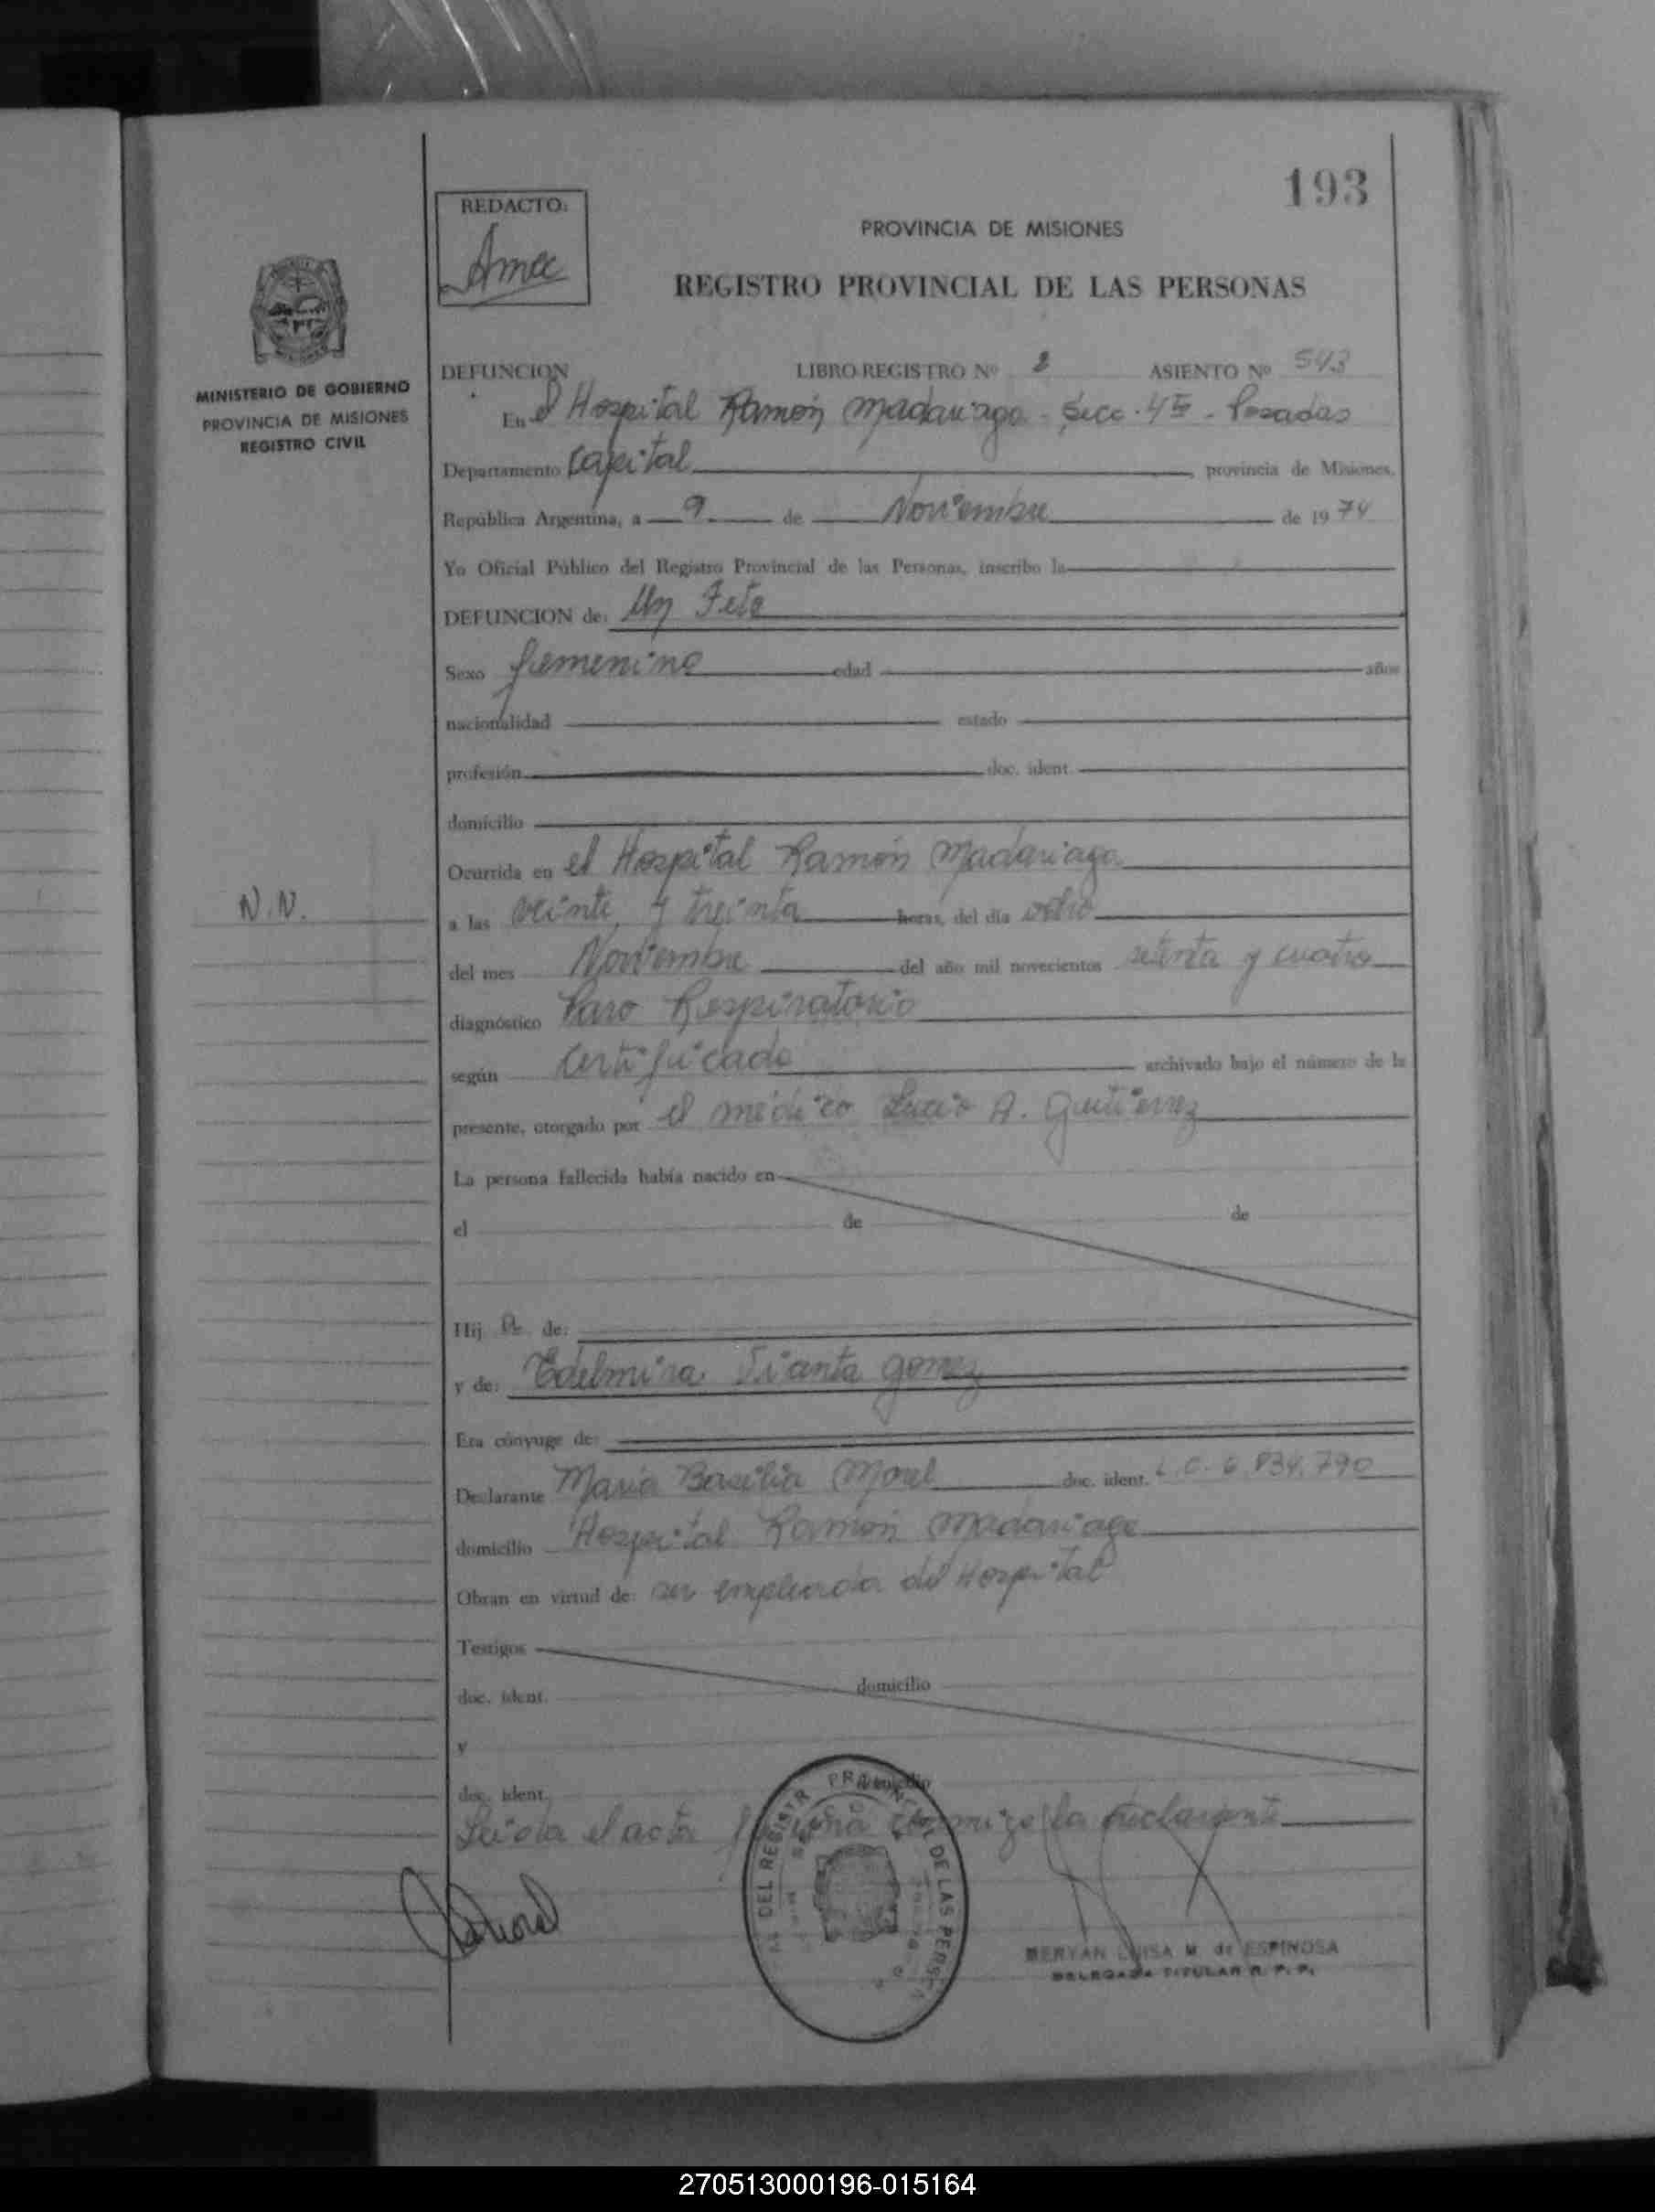 193
REDACTO:
PROVINCIA DE MISIONES
REGISTRO PROVINCIAL DE LAS PERSONAS
MINISTERIO DE GOBIERNO
PROVINCIA DE MISIONES
REGISTRO CIVIL
DEFUNCION LIBRO REGISTRO Nº 2 ASIENTO Nº 543
En el Hospital Ramón Madariaga - Secc. 4ta - Posadas
Departamento Capital, provincia de Misiones,
República Argentina, a 9 de Noviembre de 1974
Yo Oficial Público del Registro Provincial de las Personas, inscribo la
DEFUNCION de: Un Feto
Sexo femenino edad años
nacionalidad estado
profesión doc. ident.
domicilio
Ocurrida en el Hospital Ramón Madariaga
N.N.
a las veinte y treinta horas, del día ocho
del mes Noviembre del año mil novecientos setenta y cuatro
diagnóstico Paro Respiratorio
según certificado archivado bajo el número de la
presente, otorgado por el médico Lucio A. Gutierrez
La persona fallecida había nacido en
el de de
Hij a de:
y de: Edelmira Gomez
Era cónyuge de:
Declarante Maria Basilia Morel doc. ident. L.C. 6.834.790
domicilio Hospital Ramón Madariaga
Obran en virtud de: ser empleada del Hospital
Testigos
doc. ident. domicilio
y
doc. ident. domicilio
Leida el acta firma conmigo la declarante
DEL REGISTR PROVINCIAL DE LAS PERSONA
MERYAN LUISA M. de ESPINOSA
DELEGADA TITULAR R. P. P.
270513000196-015164